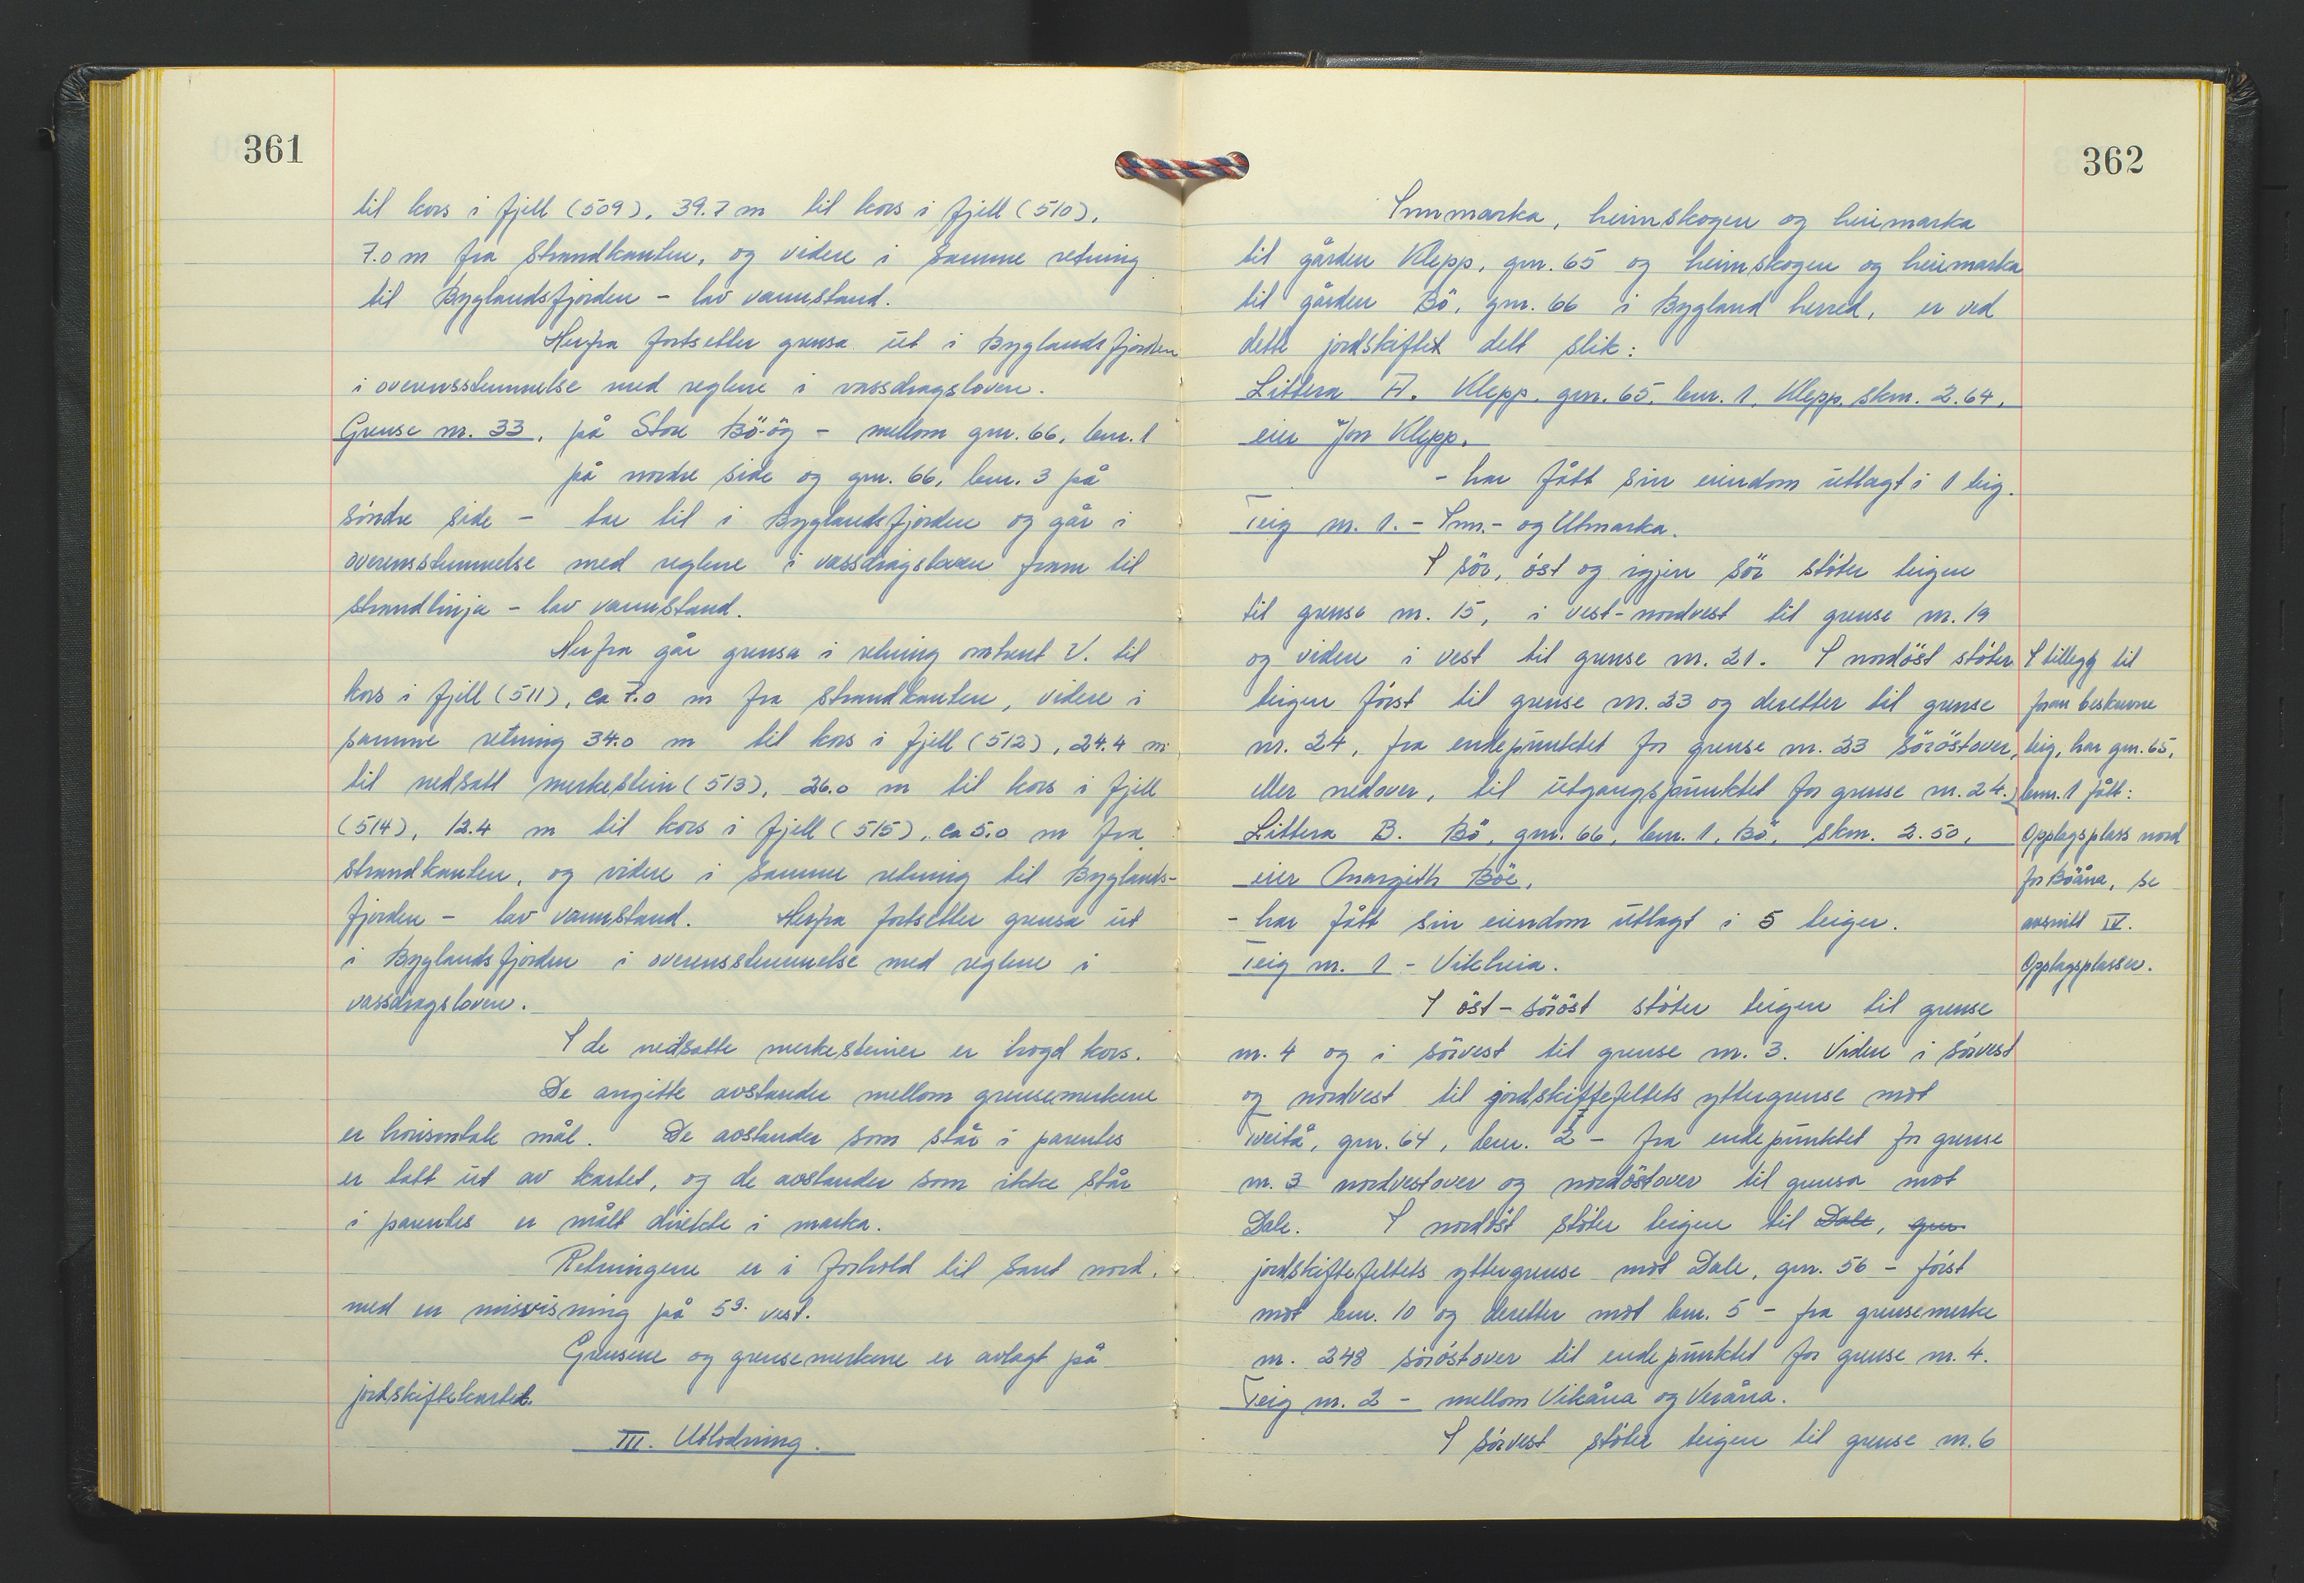 361
til kors i fjell (509), 39.7 m til kors i fjell (510),
7.0 m fra strandkanten, og videre i samme retning
til Byglandsfjorden - lav vannstand.
Herfra fortsetter grensa ut i Byglandsfjorden
i overensstemmelse med reglene i vassdragsloven.
Grense nr. 33, på Store Bö-öy - mellom gnr. 66, bnr. 1
på nordre side og gnr. 66, bnr. 3 på
söndre side - tar til i Byglandsfjorden og går i
overensstemmelse med reglene i vassdragsloven fram til
strandlinja - lav vannstand.
Herfra går grensa i retning omtrent V. til
kors i fjell (511), ca 7.0 m fra strandkanten, videre i
samme retning 34.0 m til kors i fjell (512), 24.4 m
til nedsatt merkestein (513), 26.0 m til kors i fjell
(514), 12.4 m til kors i fjell (515), ca 5.0 m fra
strandkanten, og videre i samme retning til Byglands-
fjorden - lav vannstand. Herfra fortsetter grensa ut
i Byglandsfjorden i overensstemmelse med reglene i
vassdragsloven.
I de nedsatte merkesteiner er hogd kors.
De angitte avstander mellom grensemerkene
er horisontale mål. De avstander som står i parentes
er tatt ut av kartet, og de avstander som ikke står
i parentes er målt direkte i marka.
Retningene er i forhold til sant nord,
med en misvisning på 5g. vest.
Grensene og grensemerkene er avlagt på
jordskiftekartet.
III. Utlodning.
362
Innmarka, heimskogen og heimarka
til gården Klepp, gnr. 65 og heimskogen og heimarka
til gården Bö, gnr. 66 i Bygland herred, er ved
dette jordskiftet delt slik:
Littera A. Klepp, gnr. 65, bnr. 1, Klepp, skm. 2.64,
eier Jon Klepp,
- har fått sin eiendom utlagt i 1 teig.
Teig nr. 1. - Inn- og Utmarka.
I sör, öst og igjen sör stöter teigen
til grense nr. 15, i vest-nordvest til grense nr. 19
og videre i vest til grense nr. 21. I nordöst stöter
teigen först til grense nr. 23 og deretter til grense
nr. 24, fra endepunktet for grense nr. 23 söröstover,
eller nedover, til utgangspunktet for grense nr. 24.
Littera B. Bö, gnr. 66, bnr. 1, Bö, skm. 2.50,
eier Margith Böe,
- har fått sin eiendom utlagt i 5 teiger.
Teig nr. 1 - Vikheia.
I öst-söröst stöter teigen til grense
nr. 4 og i sörvest til grense nr. 3. Videre i sörvest
og nordvest til jordskiftefeltets yttergrense mot
Tveitå, gnr. 64, bnr. 2 - fra endepunktet for grense
nr. 3 nordvestover og nordöstover til grensa mot
Dale. I nordöst stöter teigen til Dale, gnr
jordskiftefeltets yttergrense mot Dale, gnr. 56 - först
mot bnr. 10 og deretter mot bnr. 5 - fra grensemerke
nr. 248 söröstover til endepunktet for grense nr. 4.
Teig nr. 2 - mellom Vikåna og Veråna.
I sörvest stöter teigen til grense nr. 6
I tillegg til
foran beskrevne
teig, har gnr. 65,
bnr. 1 fått:
Opplagsplass nord
for Böåna, se
avsnitt IV.
Opplagsplasser.